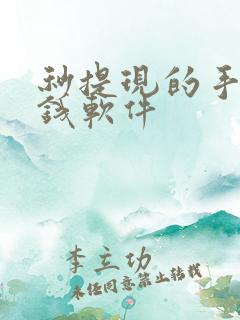 秒提現的手
錢軟件
李立功
未经同意禁止转载